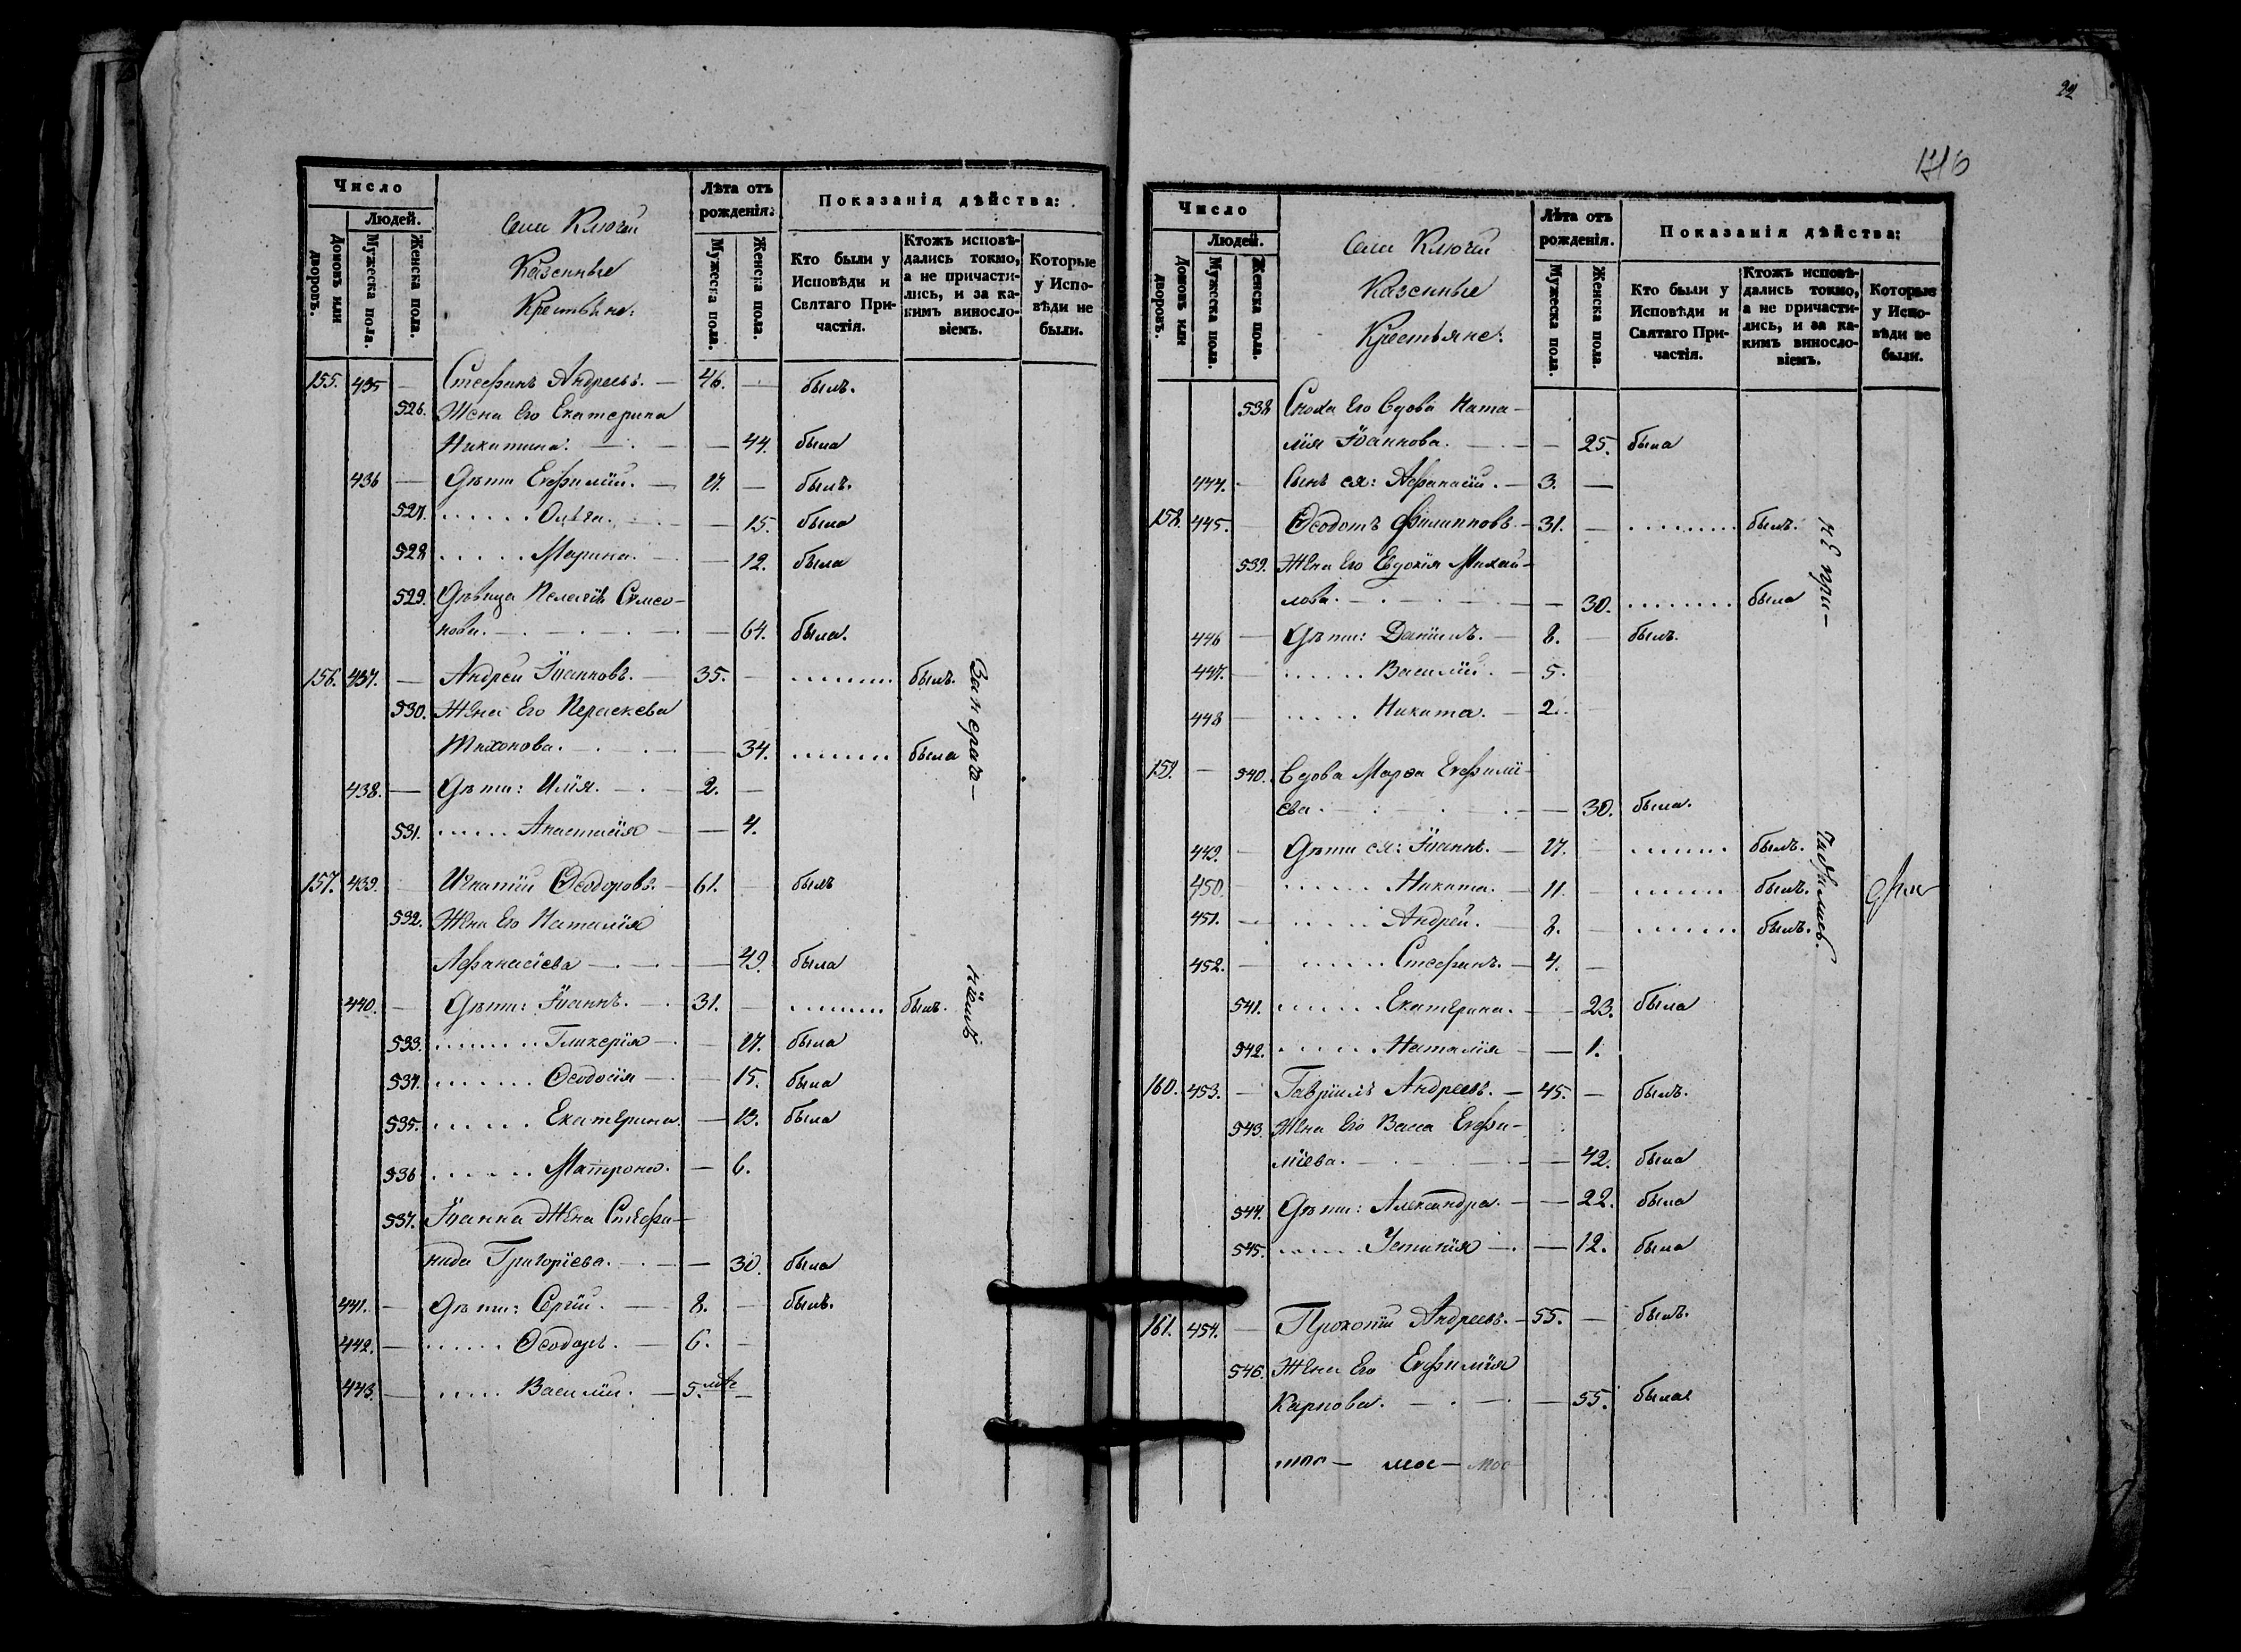 Число
Людей.
Домовъ или дворовъ.
Мужеска пола.
Женска пола.
Села Ключей
Казенные
Крестьяне:
Лѣта отъ рожденія:
Мужеска пола.
Женска пола.
Показанія дѣйства:
Кто были у Исповѣди и Святаго Причастія.
Ктожъ исповѣдались токмо, а не причастились, и за какимъ винословіемъ.
Которые у Исповѣди не были.
155. 435 — Стефанъ Андреевъ. — 46. — былъ.
526. Жена Его Екатерина
Никитина. — 44. была
436 — Дѣти Евфимій. — 17. — былъ.
527. ...... Ольга. — 15. была
528 ...... Марина. — 12. была
529. Дѣвица Пелагія Симео-
нова. — 64. была.
156. 437. — Андрей Іоанновъ. — 35. — ........ былъ.
530. Жена Его Параскева
Тихонова. — 34. ........ была
438. — Дѣти: Илія. — 2. —
531. ...... Анастасія — 4.
157. 439. — Игнатій Ѳеодоровъ. — 61. — былъ
532. Жена Его Наталія
Афанасіева — 49. была
440. — Дѣти: Іоаннъ. — 31. — ........ былъ.
533. ........ Гликерія — 17. была
534. ....... Ѳеодосія — 15. была
535. ...... Екатерина. — 13. была
536 ...... Матрона. — 6.
537. Іоанна Жена Стефа-
нида Григоріева. — 30. была
441. — Дѣти: Сергій. — 8. — былъ.
442. — ...... Ѳеодоръ. — 6. —
443. — ..... Василій. — 5. мѣс —
22
Число
Людей.
Домовъ или дворовъ.
Мужеска пола.
Женска пола.
Села Ключей
Казенные
Крестьяне:
Лѣта отъ рожденія.
Мужеска пола.
Женска пола.
Показанія дѣйства:
Кто были у Исповѣди и Святаго Причастія.
Ктожъ исповѣдались токмо, а не причастились, и за какимъ винословіемъ.
Которые у Исповѣди не были.
538 Сноха Его Вдова Ната-
лія Іоаннова. — 25. была
444. — Сынъ ея: Афанасій. — 3. —
158. 445. — Ѳеодотъ Филипповъ. — 31. — ........ былъ.
539. Жена Его Евдокія Михай-
лова. — 30. ........ была
446 — Дѣти: Даніилъ. — 8. — былъ.
447. — ...... Василій. — 5.
448 — ..... Никита. — 2.
159. — 540. Вдова Марѳа Евфимі-
ева. — 30. была.
449. — Дѣти ея: Іоаннъ. — 17. — ...... былъ.
450 — ...... Никита. — 11. — ...... былъ.
451. — ..... Андрей. — 8. — ...... былъ.
452. — ..... Стефанъ. — 4. —
541. ...... Екатерина. — 23. была
542. ..... Наталія — 1.
160. 453. — Гавріилъ Андреевъ. — 45. — былъ.
543. Жена Его Васса Евфи-
міева. — 42. была
544. Дѣти: Александра. — 22. была
545. ..... Устинія — 12. была
161. 454. — Прокопій Андреевъ. — 55. — былъ.
546. Жена Его Евфимія
Карпова. — 55. была